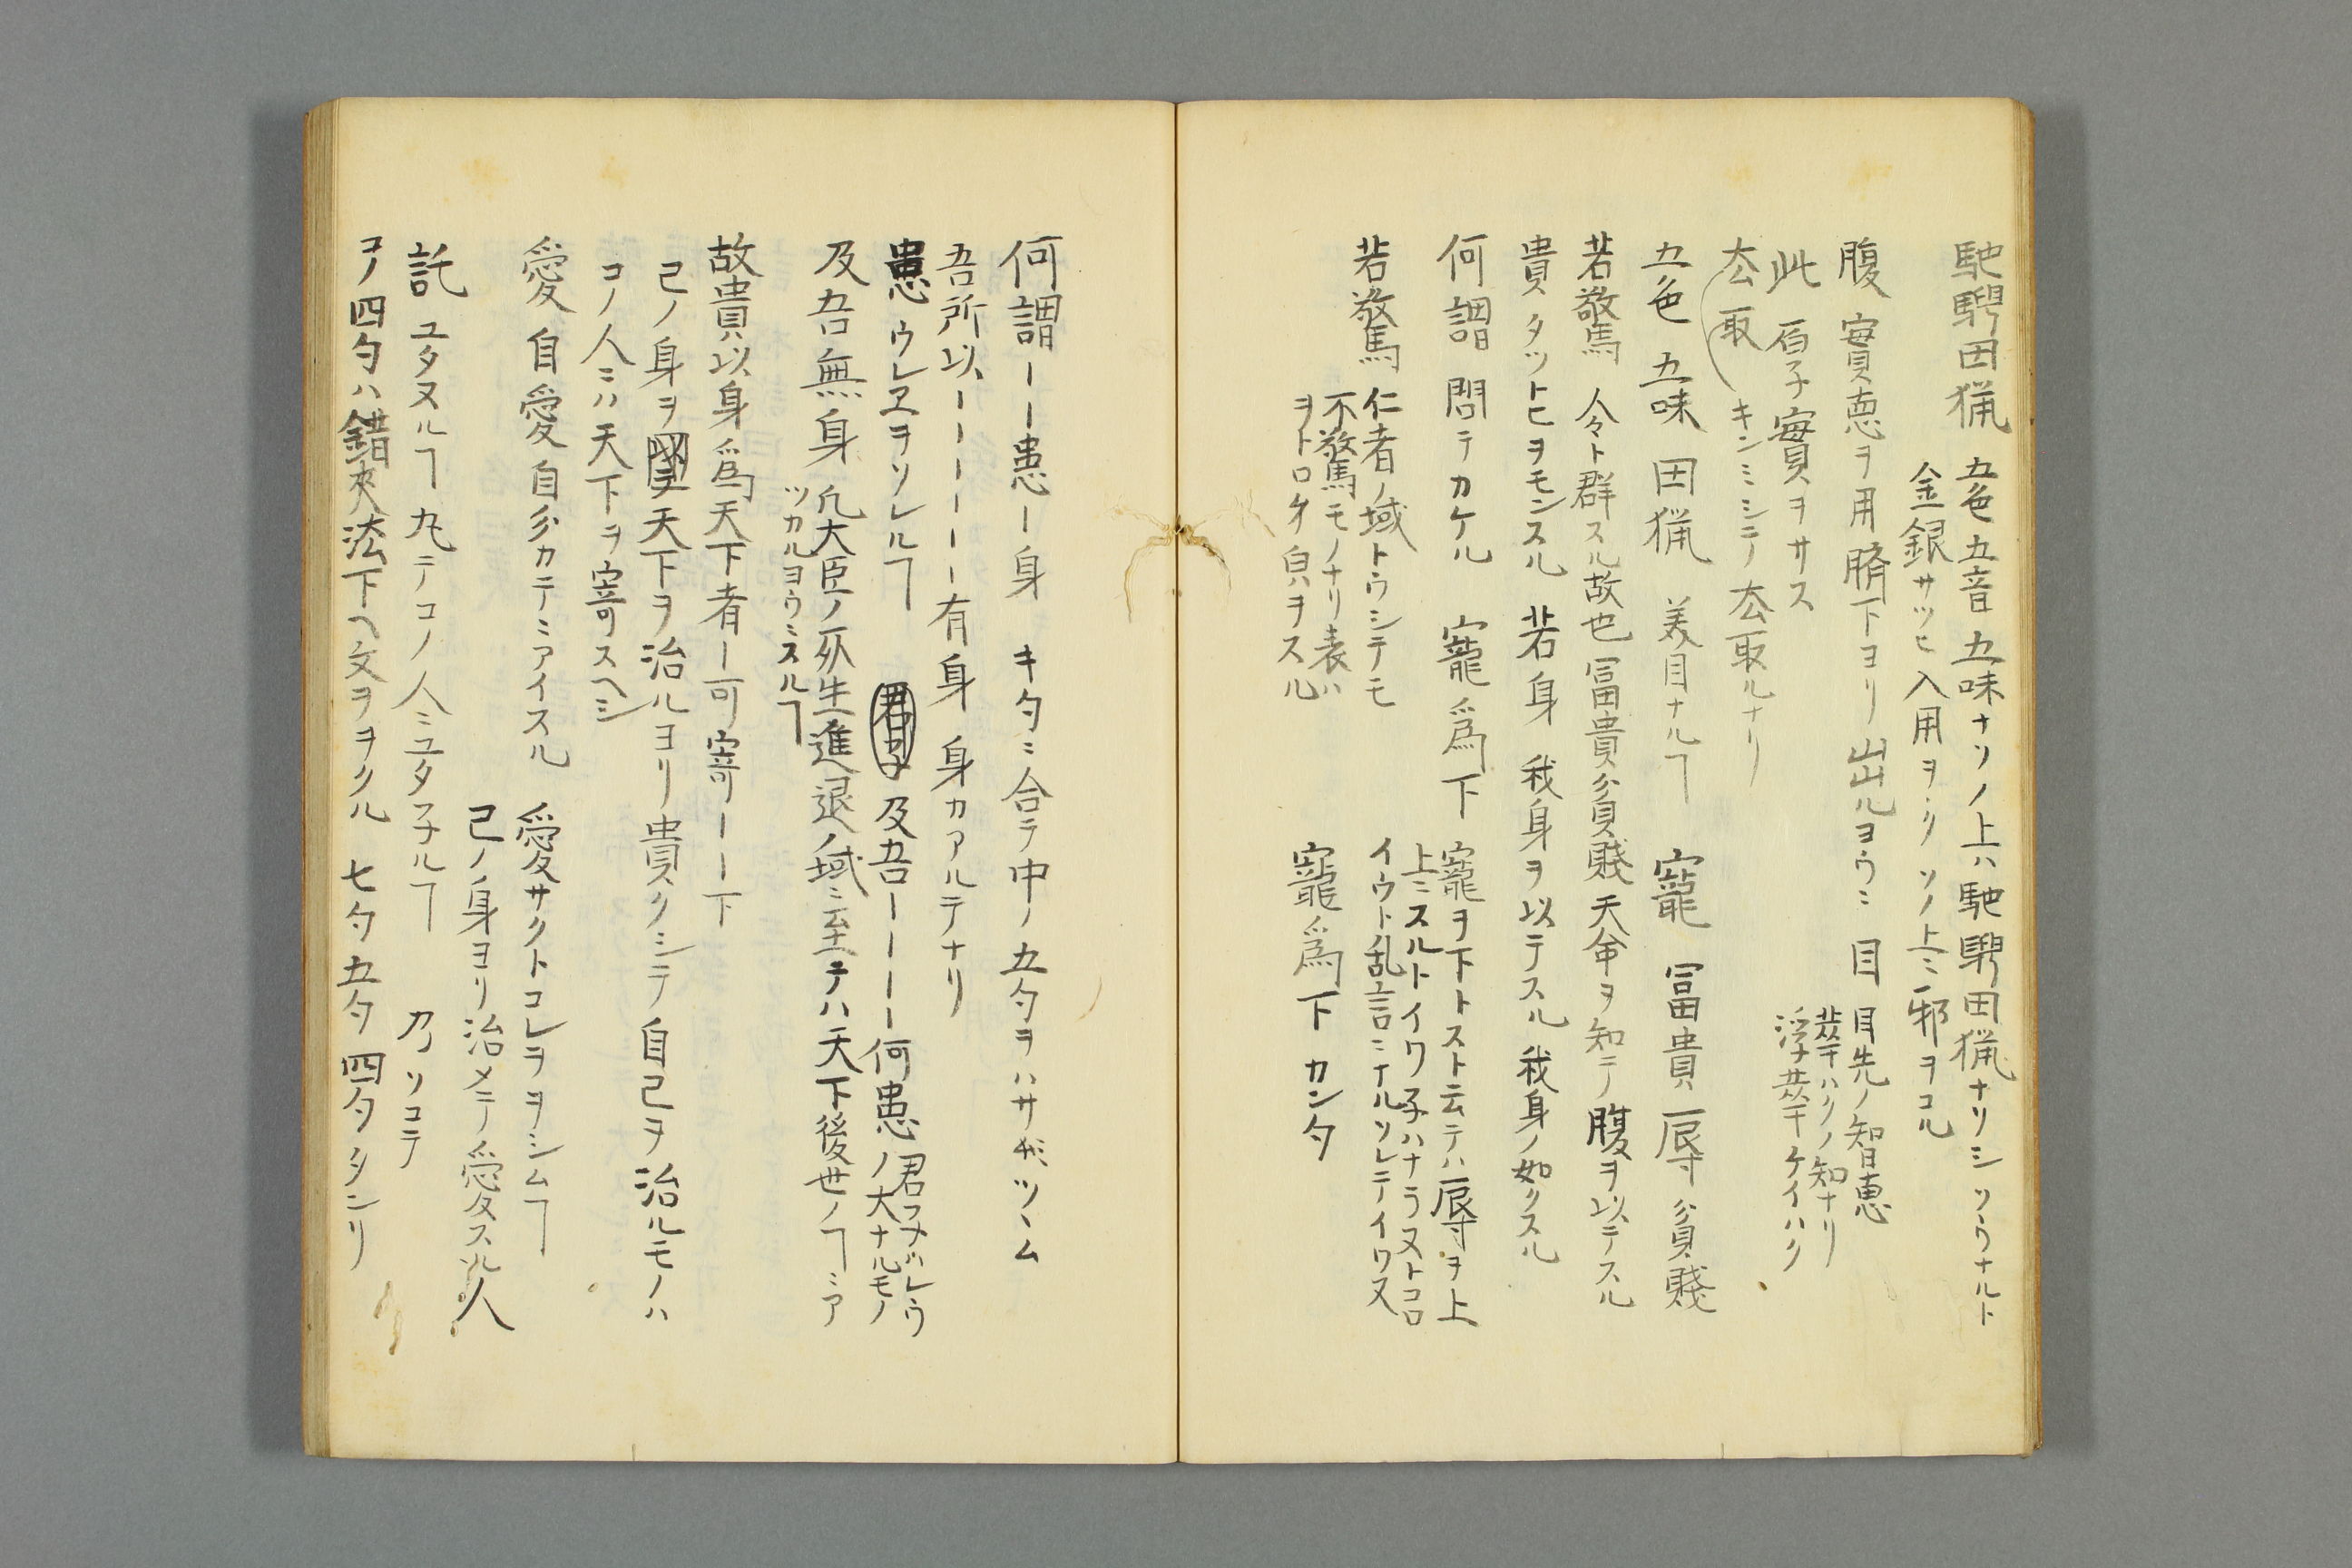 馳騁田猟 五色五音五味ナソノ上ハ馳騁田猟ナリシソウナルト
金銀サツヒ入用ヲヽクソノ上ニ邪ヲコル
腹 實恵ヲ用臍下ヨリ出ルヨウニ 目 目先ノ智恵
ハクノ知ナリ
浮 ケイハク
此 石子實ヲサス
去取 キンミシテ去取ルナリ
五色 五味 田猟 美目ナルヿ 寵 冨貴 辱 貧賤
若驚 令ト群スル故也冨貴貧賤天命ヲ知テ腹ヲ以テスル
貴 タツトヒヲモンスル 若身 我身ヲ以テスル我身ノ如クスル
何謂 問テカケル 寵為下 寵ヲ下トスト云テハ辱ヲ上
上ニスルトイワ子ハナラヌトコロ
イウト乱言ニナルソレテイワヌ
若驚 仁者ノ域トウシテモ
不驚モノナリ表ハ
ヲトロク皃ヲスル
寵為下 カンタ
何謂ーー患ー身 キ勺ニ合テ中ノ五勺ヲハサギツヽム
吾所以ーーーーー有身 身カアルテナリ
患 ウレヱヲソレルヿ 君子 及吾ーーーー何患 君コヲバレウ
ノ大ナルモノ
及吾無身 凢大臣ノ死生進退ノ域ニ至テハ天下後世ノヿニア
ツカルヨウニスルヿ
故貴以身為天下者ー可寄ーー下
己ノ身ヲ 天下ヲ治ルヨリ貴クシテ自己ヲ治ルモノハ
コノ人ニハ天下ヲ寄スヘシ
愛 自愛 自分カテニアイスル 愛サクトコレヲヲシムヿ
己ノ身ヨリ治メテ愛スル人
託 ユタヌルヿ 九テコノ人ニユタ子ルヿ 乃 ソコテ
ヲノ四勺ハ錯夾法下ヘ文ヲヲクル 七勺五勺四勺タンリ